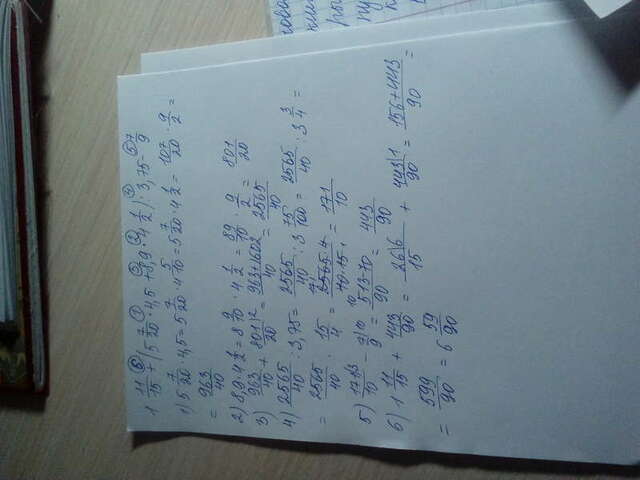 1 11/15 + (5 7/20 · 4,5 + 8,9 · 4 1/2) : 3,75 - 7/9
1) 5 7/20 · 4,5 = 5 7/20 · 4 5/10 = 5 7/20 · 4 1/2 = 107/20 · 9/2 =
= 963/40
2) 8,9 · 4 1/2 = 8 9/10 · 4 1/2 = 89/10 · 9/2 = 801/20
3) 963/40 + 801/20 = 963+1602/40 = 2565/40
4) 2565/40 : 3,75 = 2565/40 : 3 75/100 = 2565/40 : 3 3/4 =
= 2565/40 · 15/4 = 2565·4/40·15 = 171/10
5) 171/10 - 7/9 = 513-70/90 = 443/90
6) 1 11/15 + 443/90 = 26/15 + 443/90 = 156+443/90 =
= 599/90 = 6 59/90